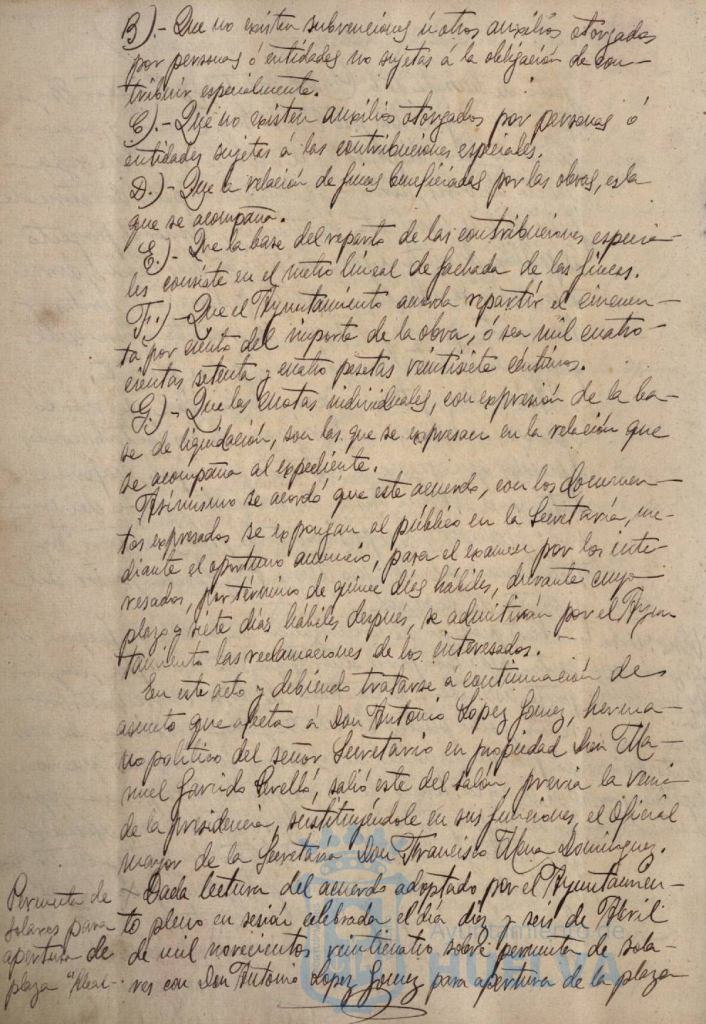 B).- Que no existen subvenciones ú otros auxilios otorgados
por personas ó entidades no sujetas á la obligación de con-
tribuir especialmente.
C).- Que no existen auxilios otorgados por personas ó
entidades sujetas á las contribuciones especiales.
D.)- Que la relación de fincas beneficiadas por las obras, es la
que se acompaña.
E.)- Que la base del reparto de las contribuciones especia-
les consiste en el metro lineal de fachada de las fincas.
F.)- Que el Ayuntamiento acuerda repartir el cincuen-
ta por ciento del importe de la obra, ó sea mil cuatro-
cientas setenta y cuatro pesetas veintisiete céntimos.
G.)- Que las cuotas individuales, con expresión de la ba-
se de liquidación, son las que se expresan en la relación que
se acompaña al expediente.
Asimismo se acordó que este acuerdo, con los documen-
tos expresados se expongan al público en la Secretaría, me-
diante el oportuno anuncio, para el examen por los inte-
resados, por término de quince días hábiles, durante cuyo
plazo y siete días hábiles después, se admitirán por el Ayun-
tamiento las reclamaciones de los interesados.
En este acto y debiendo tratarse á continuación de
asunto que afecta á Don Antonio López Gomez, herma-
no político del señor Secretario en propiedad Don Ma-
nuel Garrido Perelló, salió este del salón, previa la venia
de la presidencia, sustituyéndole en sus funciones, el Oficial
mayor de la Secretaría Don Francisco Mena Dominguez.
Permuta de
solares para
apertura de
plaza
Dada lectura del acuerdo adoptado por el Ayuntamien-
to pleno en sesión celebrada el día diez y seis de Abril
de mil novecientos veinticuatro sobre permuta de sola-
res con Don Antonio López Gomez para apertura de la plaza
Ayuntamiento de
HUELVA